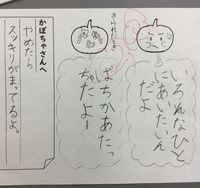 いろんなひと
にあいたいん
だよ
ばちかあたっ
ちゃたよー
かぼちゃさんへ
やめたら
スッキリがまってるよ。